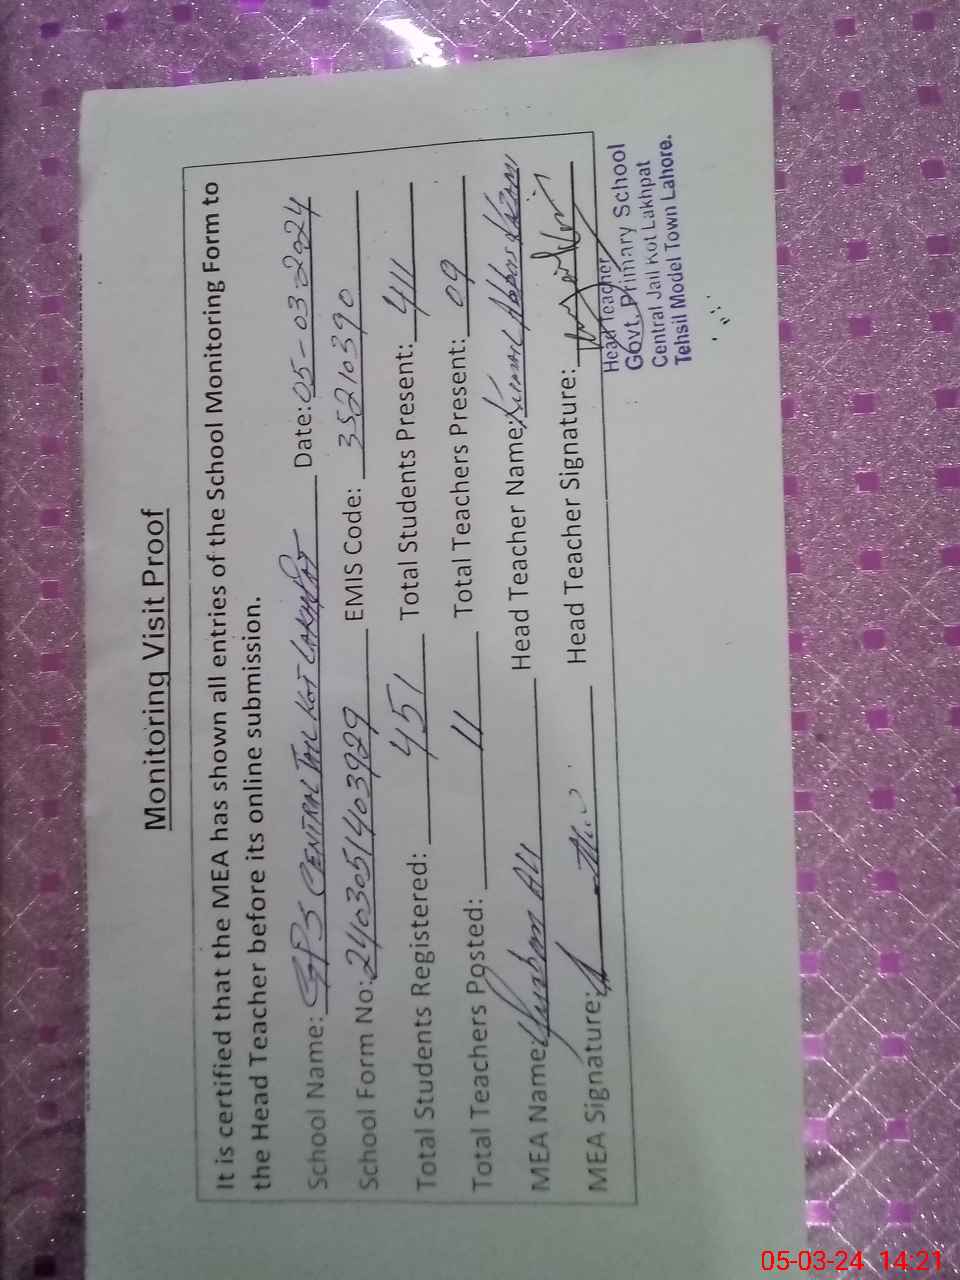 Monitoring Visit Proof
It is certified that the MEA has shown all entries of the School Monitoring Form to
the Head Teacher before its online submission.
School Name: GPS CENTRAL JAIL KOT LAKHPAT Date: 05-03-2024
School Form No: 2403051403929 EMIS Code: 35210390
Total Students Registered: 451 Total Students Present: 411
Total Teachers Posted: 11 Total Teachers Present: 09
MEA Name: Ali Head Teacher Name: Abbas Kazmi
MEA Signature: Head Teacher Signature:
Head Teacher
Govt. Primary School
Central Jail Kot Lakhpat
Tehsil Model Town Lahore.
05-03-24 14:21